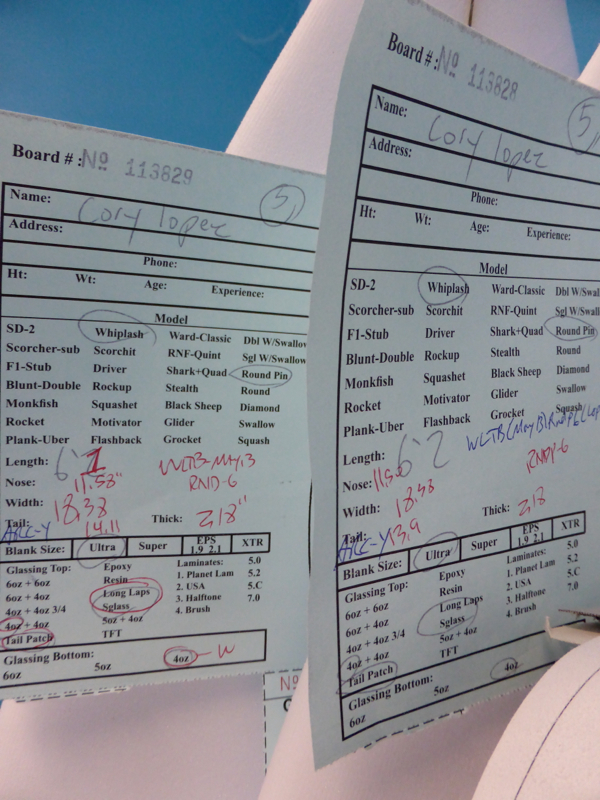 Board # : No 113829
5
Name: Cory lopez
Address:
Phone:
Ht: Wt: Age: Experience:
Model
SD-2 Whiplash Ward-Classic Dbl W/Swallow
Scorcher-sub Scorchit RNF-Quint Sgl W/Swallow
F1-Stub Driver Shark+Quad Round Pin
Blunt-Double Rockup Stealth Round
Monkfish Squashet Black Sheep Diamond
Rocket Motivator Glider Swallow
Plank-Uber Flashback Grocket Squash
Length: 6'1
Nose: 11.58" RND-6
Width: 18.38
Tail: 14.11 Thick: 2,18"
Blank Size: Ultra Super EPS 1.9 2.1 XTR
Glassing Top: Epoxy Laminates: 5.0
6oz + 6oz Resin 1. Planet Lam 5.2
6oz + 4oz Long Laps 2. USA 5.C
4oz + 4oz 3/4 Sglass 3. Halftone 7.0
4oz + 4oz 5oz + 4oz 4. Brush
Tail Patch TFT
Glassing Bottom: 4oz - W
6oz 5oz
No
Board # : No 113828
5
Name: Cory lopez
Address:
Phone:
Ht: Wt: Age: Experience:
Model
SD-2 Whiplash Ward-Classic Dbl W/Swal
Scorcher-sub Scorchit RNF-Quint Sgl W/Swall
F1-Stub Driver Shark+Quad Round Pin
Blunt-Double Rockup Stealth Round
Monkfish Squashet Black Sheep Diamond
Rocket Motivator Glider Swallow
Plank-Uber Flashback Grocket Squash
Length: 6'2
Nose: RNDP-6
Width: 18.38
Tail: 13.9 Thick: 2,18
Blank Size: Ultra Super EPS 1.9 2.1 XTR
Glassing Top: Epoxy Laminates: 5.0
6oz + 6oz Resin 1. Planet Lam 5.2
6oz + 4oz Long Laps 2. USA 5.C
4oz + 4oz 3/4 Sglass 3. Halftone 7.0
4oz + 4oz 5oz + 4oz 4. Brush
Tail Patch TFT
Glassing Bottom: 4oz
6oz 5oz